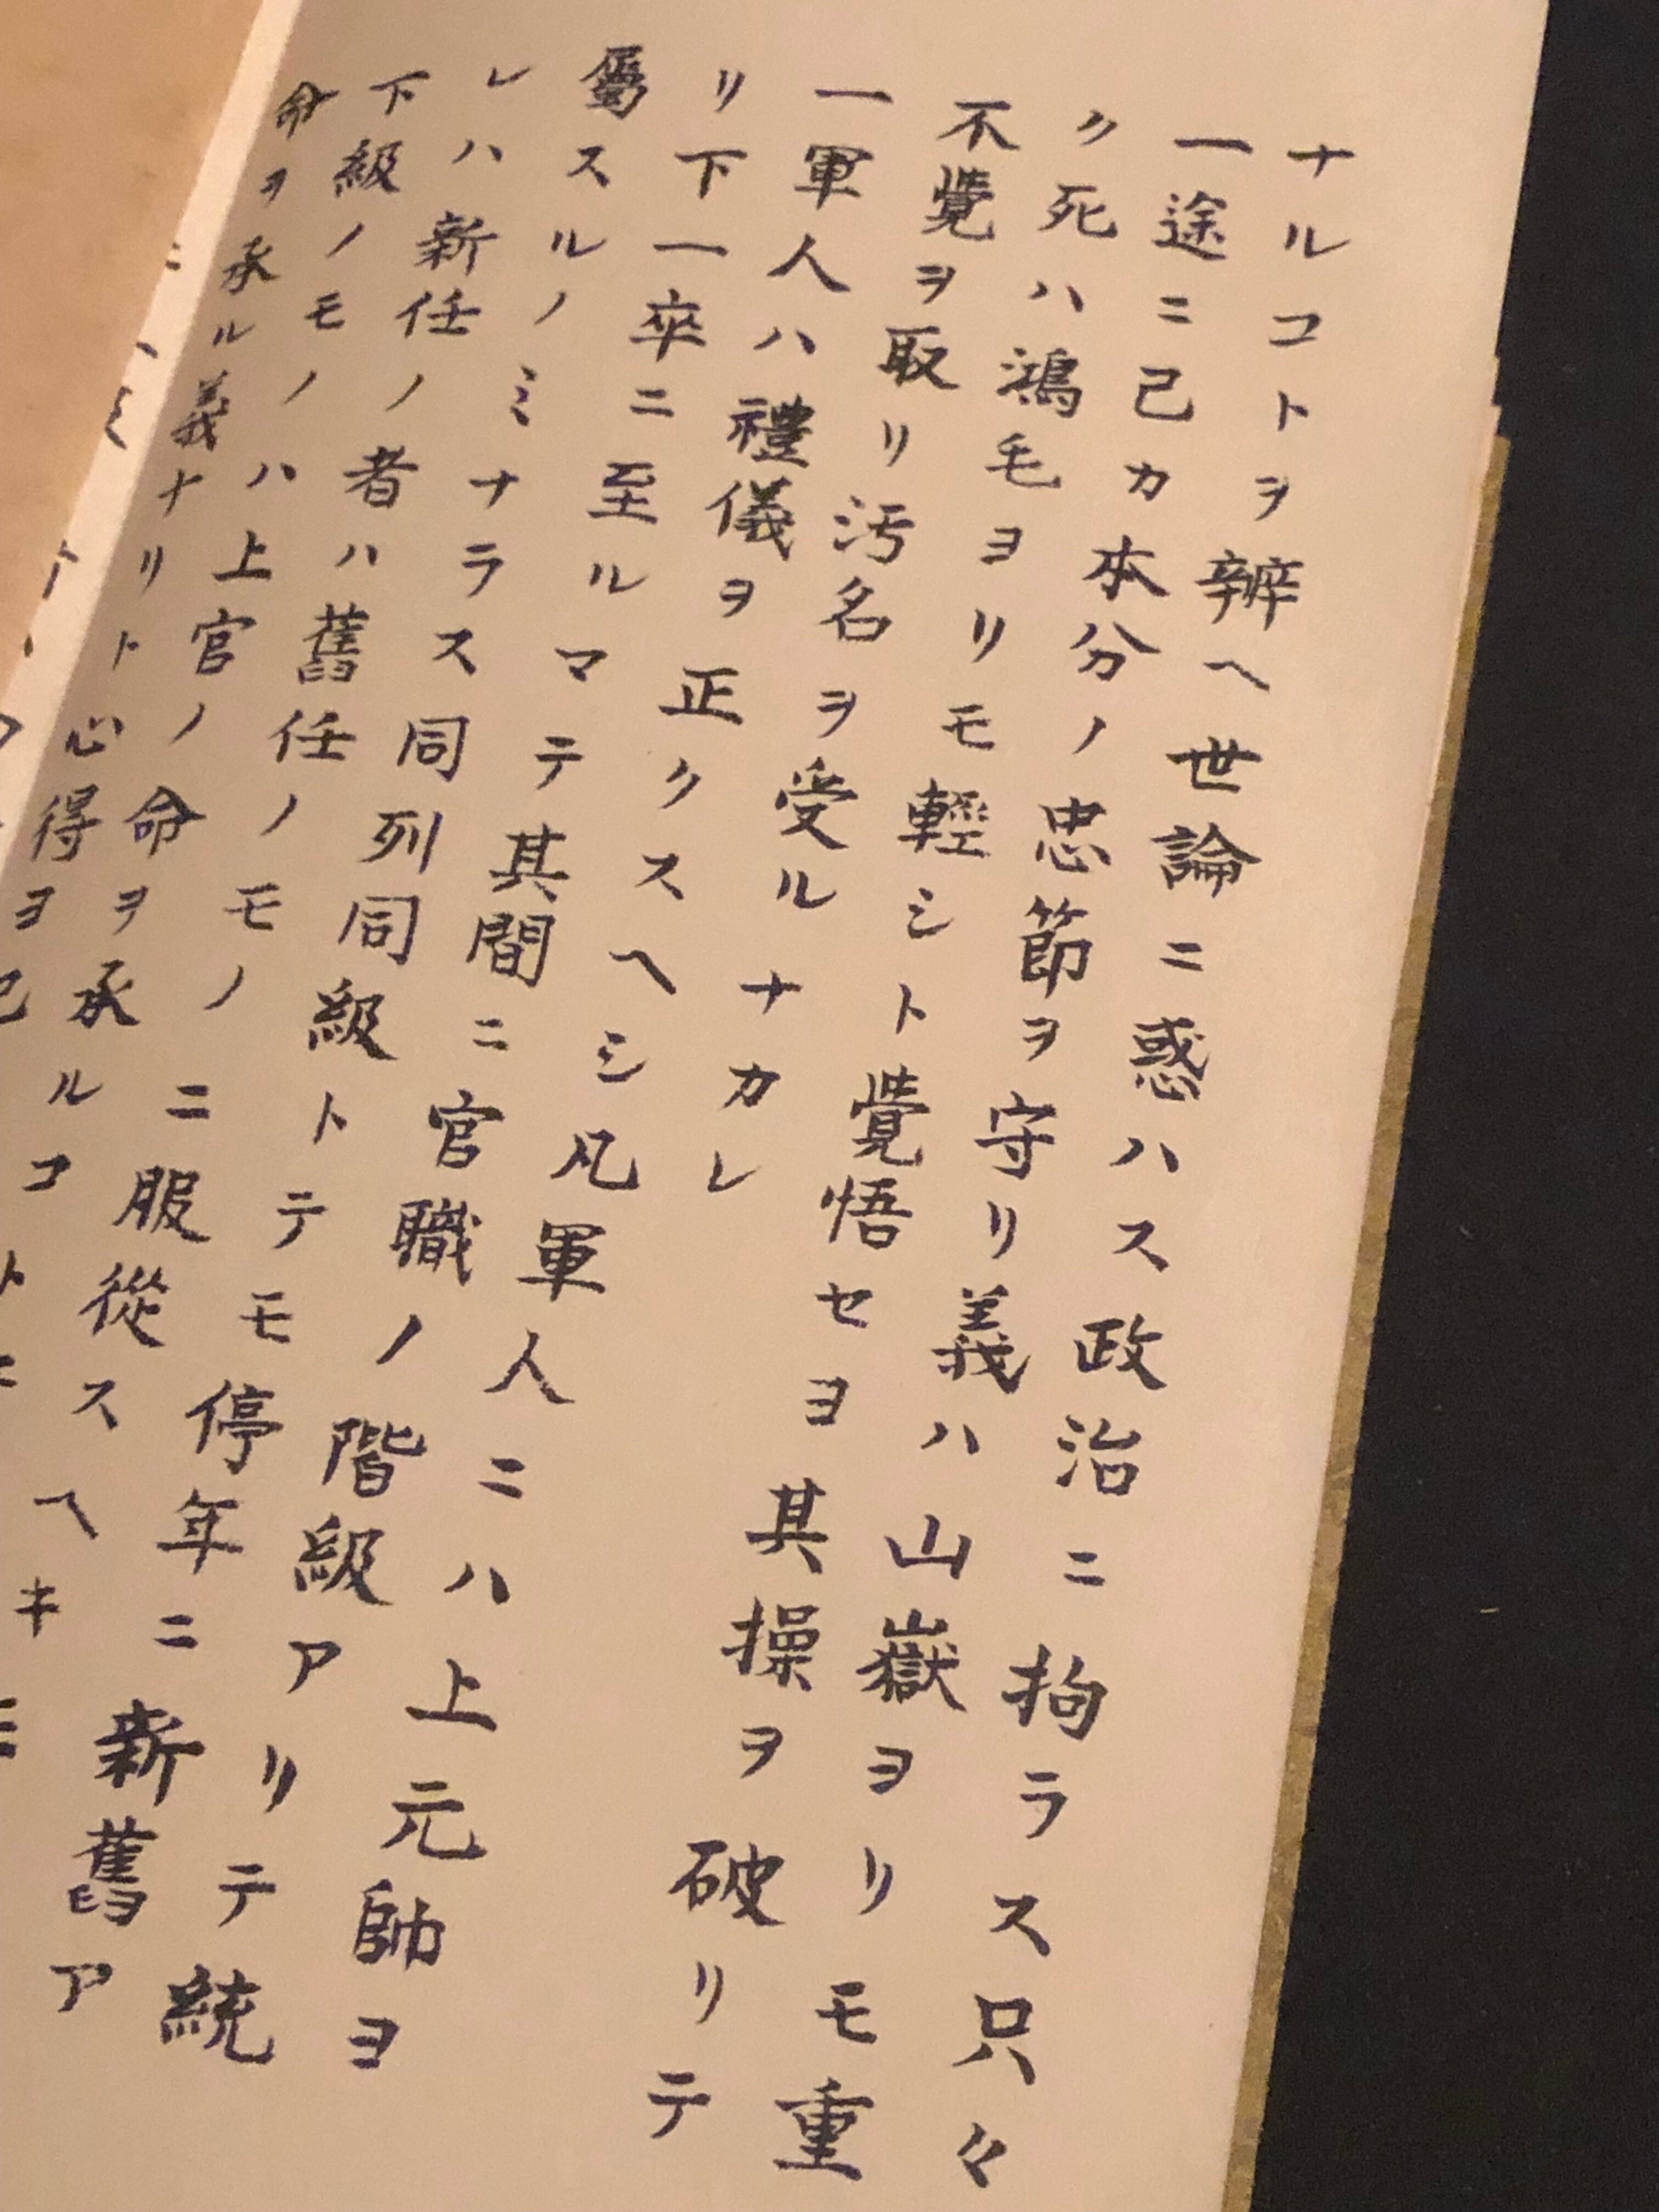 ナルコトヲ辨ヘ世論ニ惑ハス政治ニ拘ラス只々
一途ニ己カ本分ノ忠節ヲ守リ義ハ山嶽ヨリモ重
ク死ハ鴻毛ヨリモ輕シト覺悟セヨ其操ヲ破リテ
不覺ヲ取リ汚名ヲ受ルナカレ
一軍人ハ禮儀ヲ正クスヘシ凡軍人ニハ上元帥ヨ
リ下一卒ニ至ルマテ其間ニ官職ノ階級アリテ統
屬スルノミナラス同列同級トテモ停年ニ新舊ア
レハ新任ノ者ハ舊任ノモノニ服從スヘキ
下級ノモノハ上官ノ命ヲ承ルコト
命ヲ承ル義ナリト心得ヨ